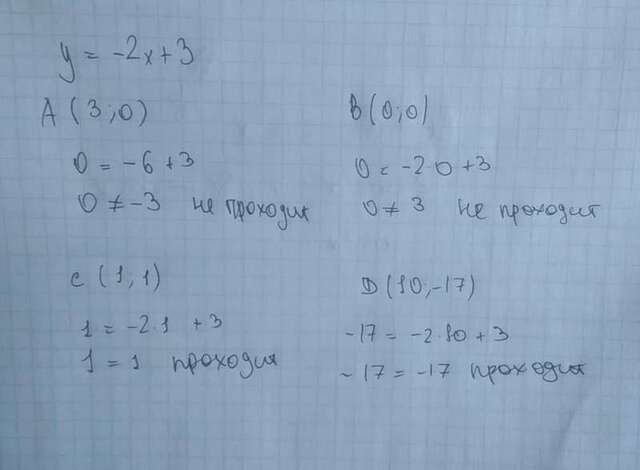 y = -2x+3
A (3;0)
0 = -6+3
0 ≠ -3 не проходит
B (0;0)
0 = -2·0+3
0 ≠ 3 не проходит
C (1;1)
1 = -2·1 +3
1 = 1 проходит
D (10;-17)
-17 = -2·10+3
-17 = -17 проходит